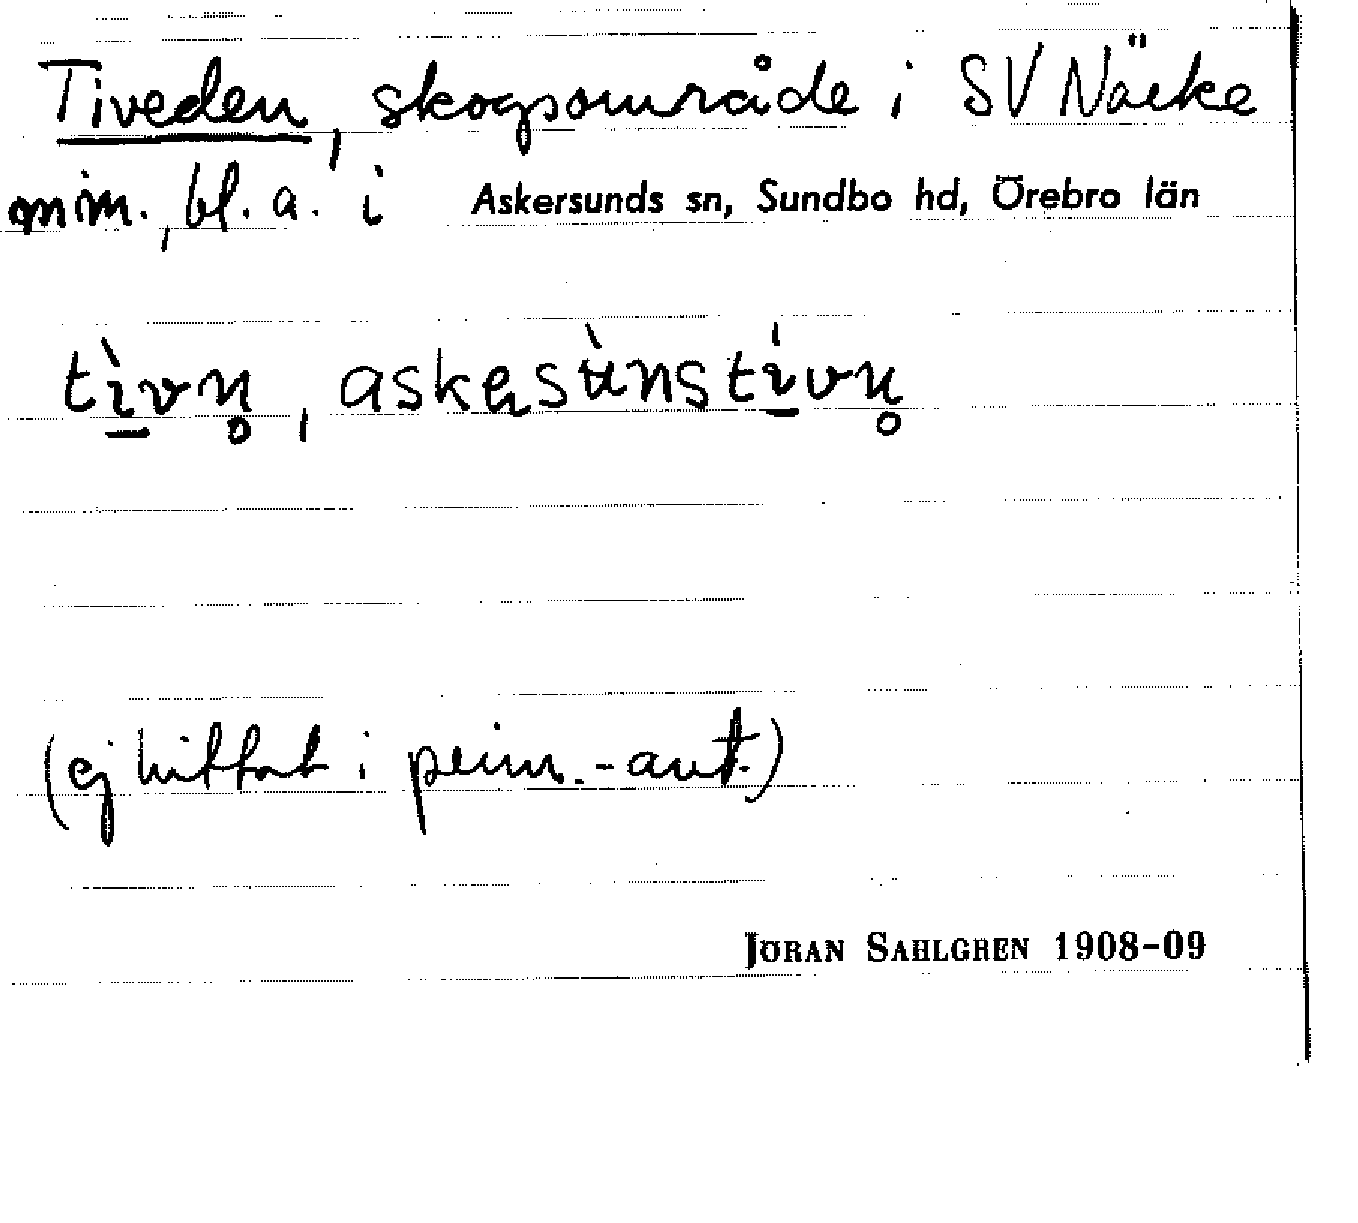 Tiveden, skogsområde i SV Närke
m.m., bl.a. i Askersunds sn, Sundbo hd, Örebro län
tı̱̀vn̥, askəsùnstı̱́vn̥
(ej hittat i prim.-ant.)
JÖRAN SAHLGREN 1908-09